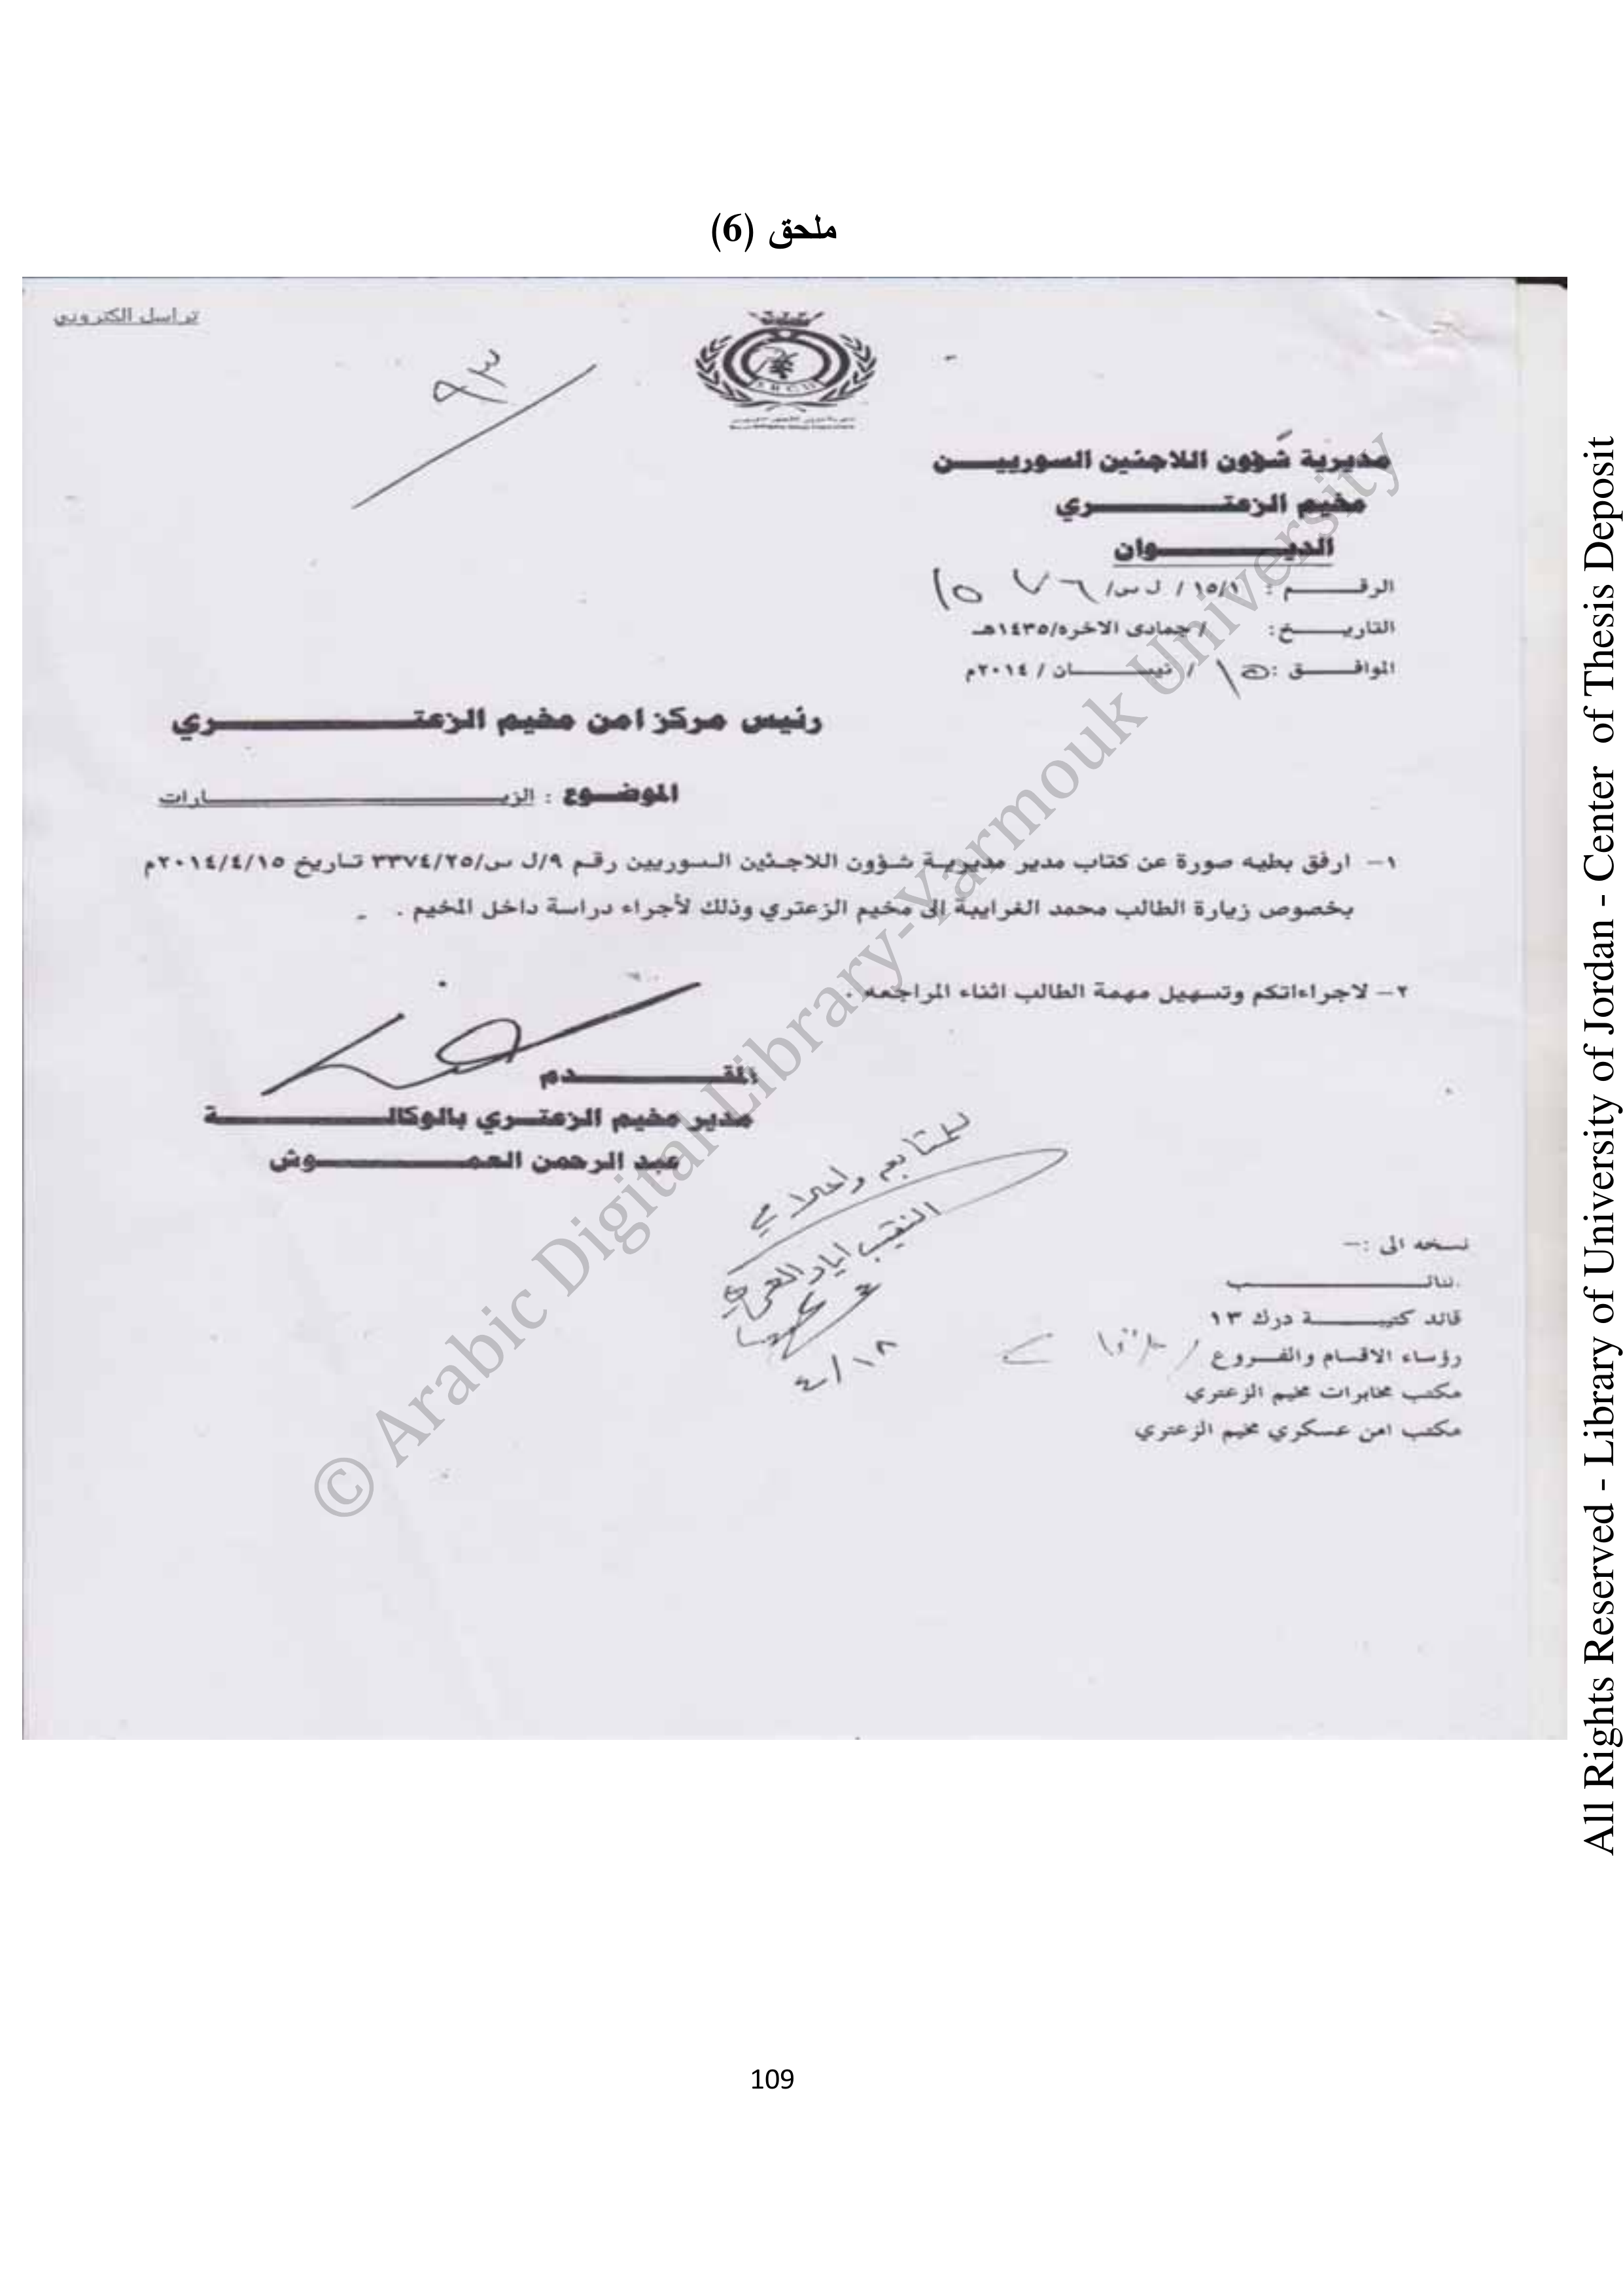 ملحق (6)
تراسل الكتروني
٩٣
مديرية شؤون اللاجئين السوريين
مخيم الزعتري
الديوان
الرقم : ١٥/١ / ل س/
التاريخ: / جمادى الاخره/١٤٣٥هـ
الموافق : ١٥ / نيسان / ٢٠١٤م
رئيس مركز امن مخيم الزعتري
الموضوع : الزيارات
١- ارفق بطيه صورة عن كتاب مدير مديرية شؤون اللاجئين السوريين رقم ٩/ل س/٣٣٧٤/٢٥ تاريخ ٢٠١٤/٤/١٥م
بخصوص زيارة الطالب محمد الغرايبة إلى مخيم الزعتري وذلك لأجراء دراسة داخل المخيم .
٢- لاجراءاتكم وتسهيل مهمة الطالب اثناء المراجعه .
المقدم
مدير مخيم الزعتري بالوكالة
عبد الرحمن العموش
للمتابعه واعلامي
النقيب اياد
٤/١٨
نسخه الى :-
قائد كتيبة درك ١٣
رؤساء الاقسام والفروع
مكتب مخابرات مخيم الزعتري
مكتب امن عسكري مخيم الزعتري
© Arabic Digital Library-Yarmouk University
All Rights Reserved - Library of University of Jordan - Center of Thesis Deposit
109